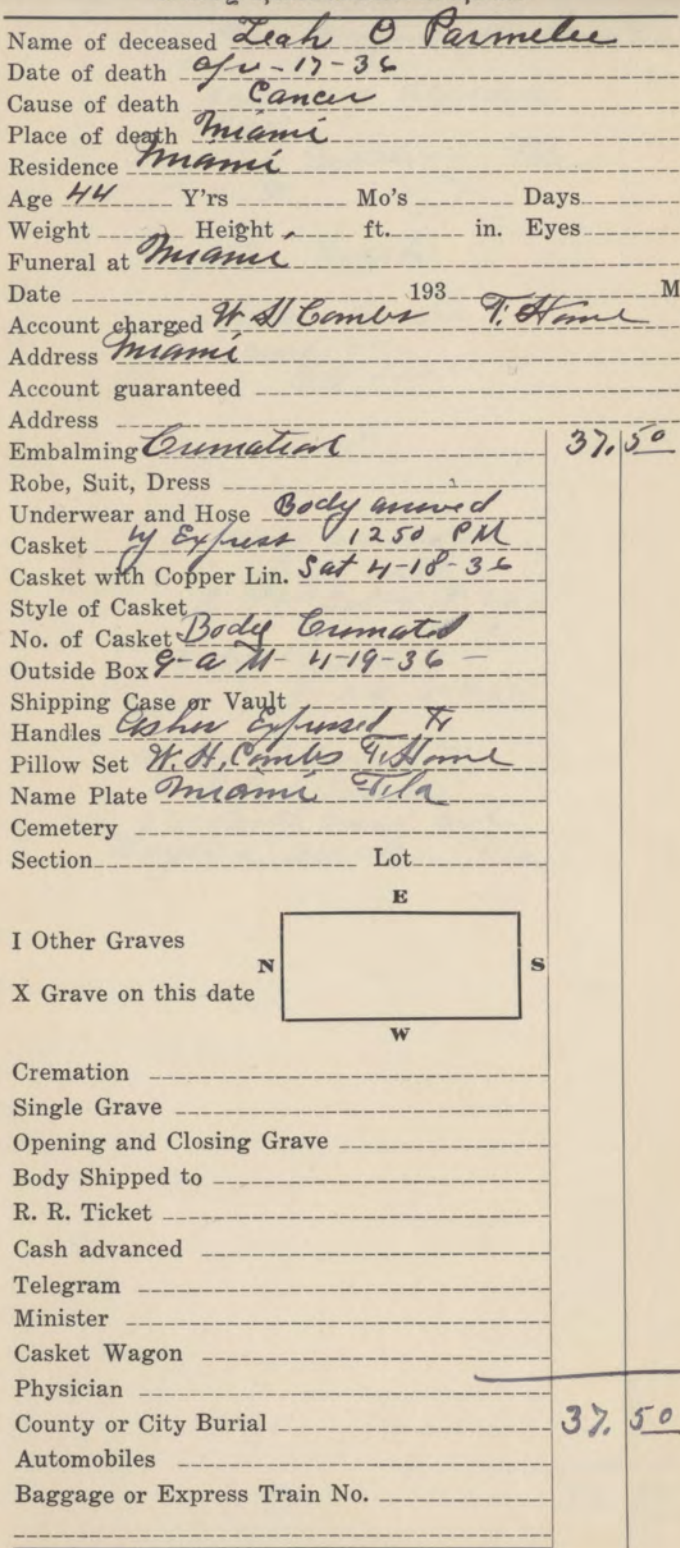 Name of deceased Leah O Parmelee
Date of death Apr-17-36
Cause of death Cancer
Place of death Miami
Residence Miami
Age 44 Y'rs Mo's Days
Weight Height ft. in. Eyes
Funeral at Miami
Date 193 M
Account charged W H Combs F. Home
Address Miami
Account guaranteed
Address
Embalming Cremation 37.50
Robe, Suit, Dress
Underwear and Hose Body arrived
Casket by Express 1250 PM
Casket with Copper Lin. Sat 4-18-36
Style of Casket
No. of Casket Body Cremated
Outside Box 9-a M- 4-19-36 -
Shipping Case or Vault
Handles Ashes Expressed to
Pillow Set W. H. Combs F. Home
Name Plate Miami Fla
Cemetery
Section Lot
E
I Other Graves
N S
X Grave on this date
W
Cremation
Single Grave
Opening and Closing Grave
Body Shipped to
R. R. Ticket
Cash advanced
Telegram
Minister
Casket Wagon
Physician
County or City Burial 37.50
Automobiles
Baggage or Express Train No.